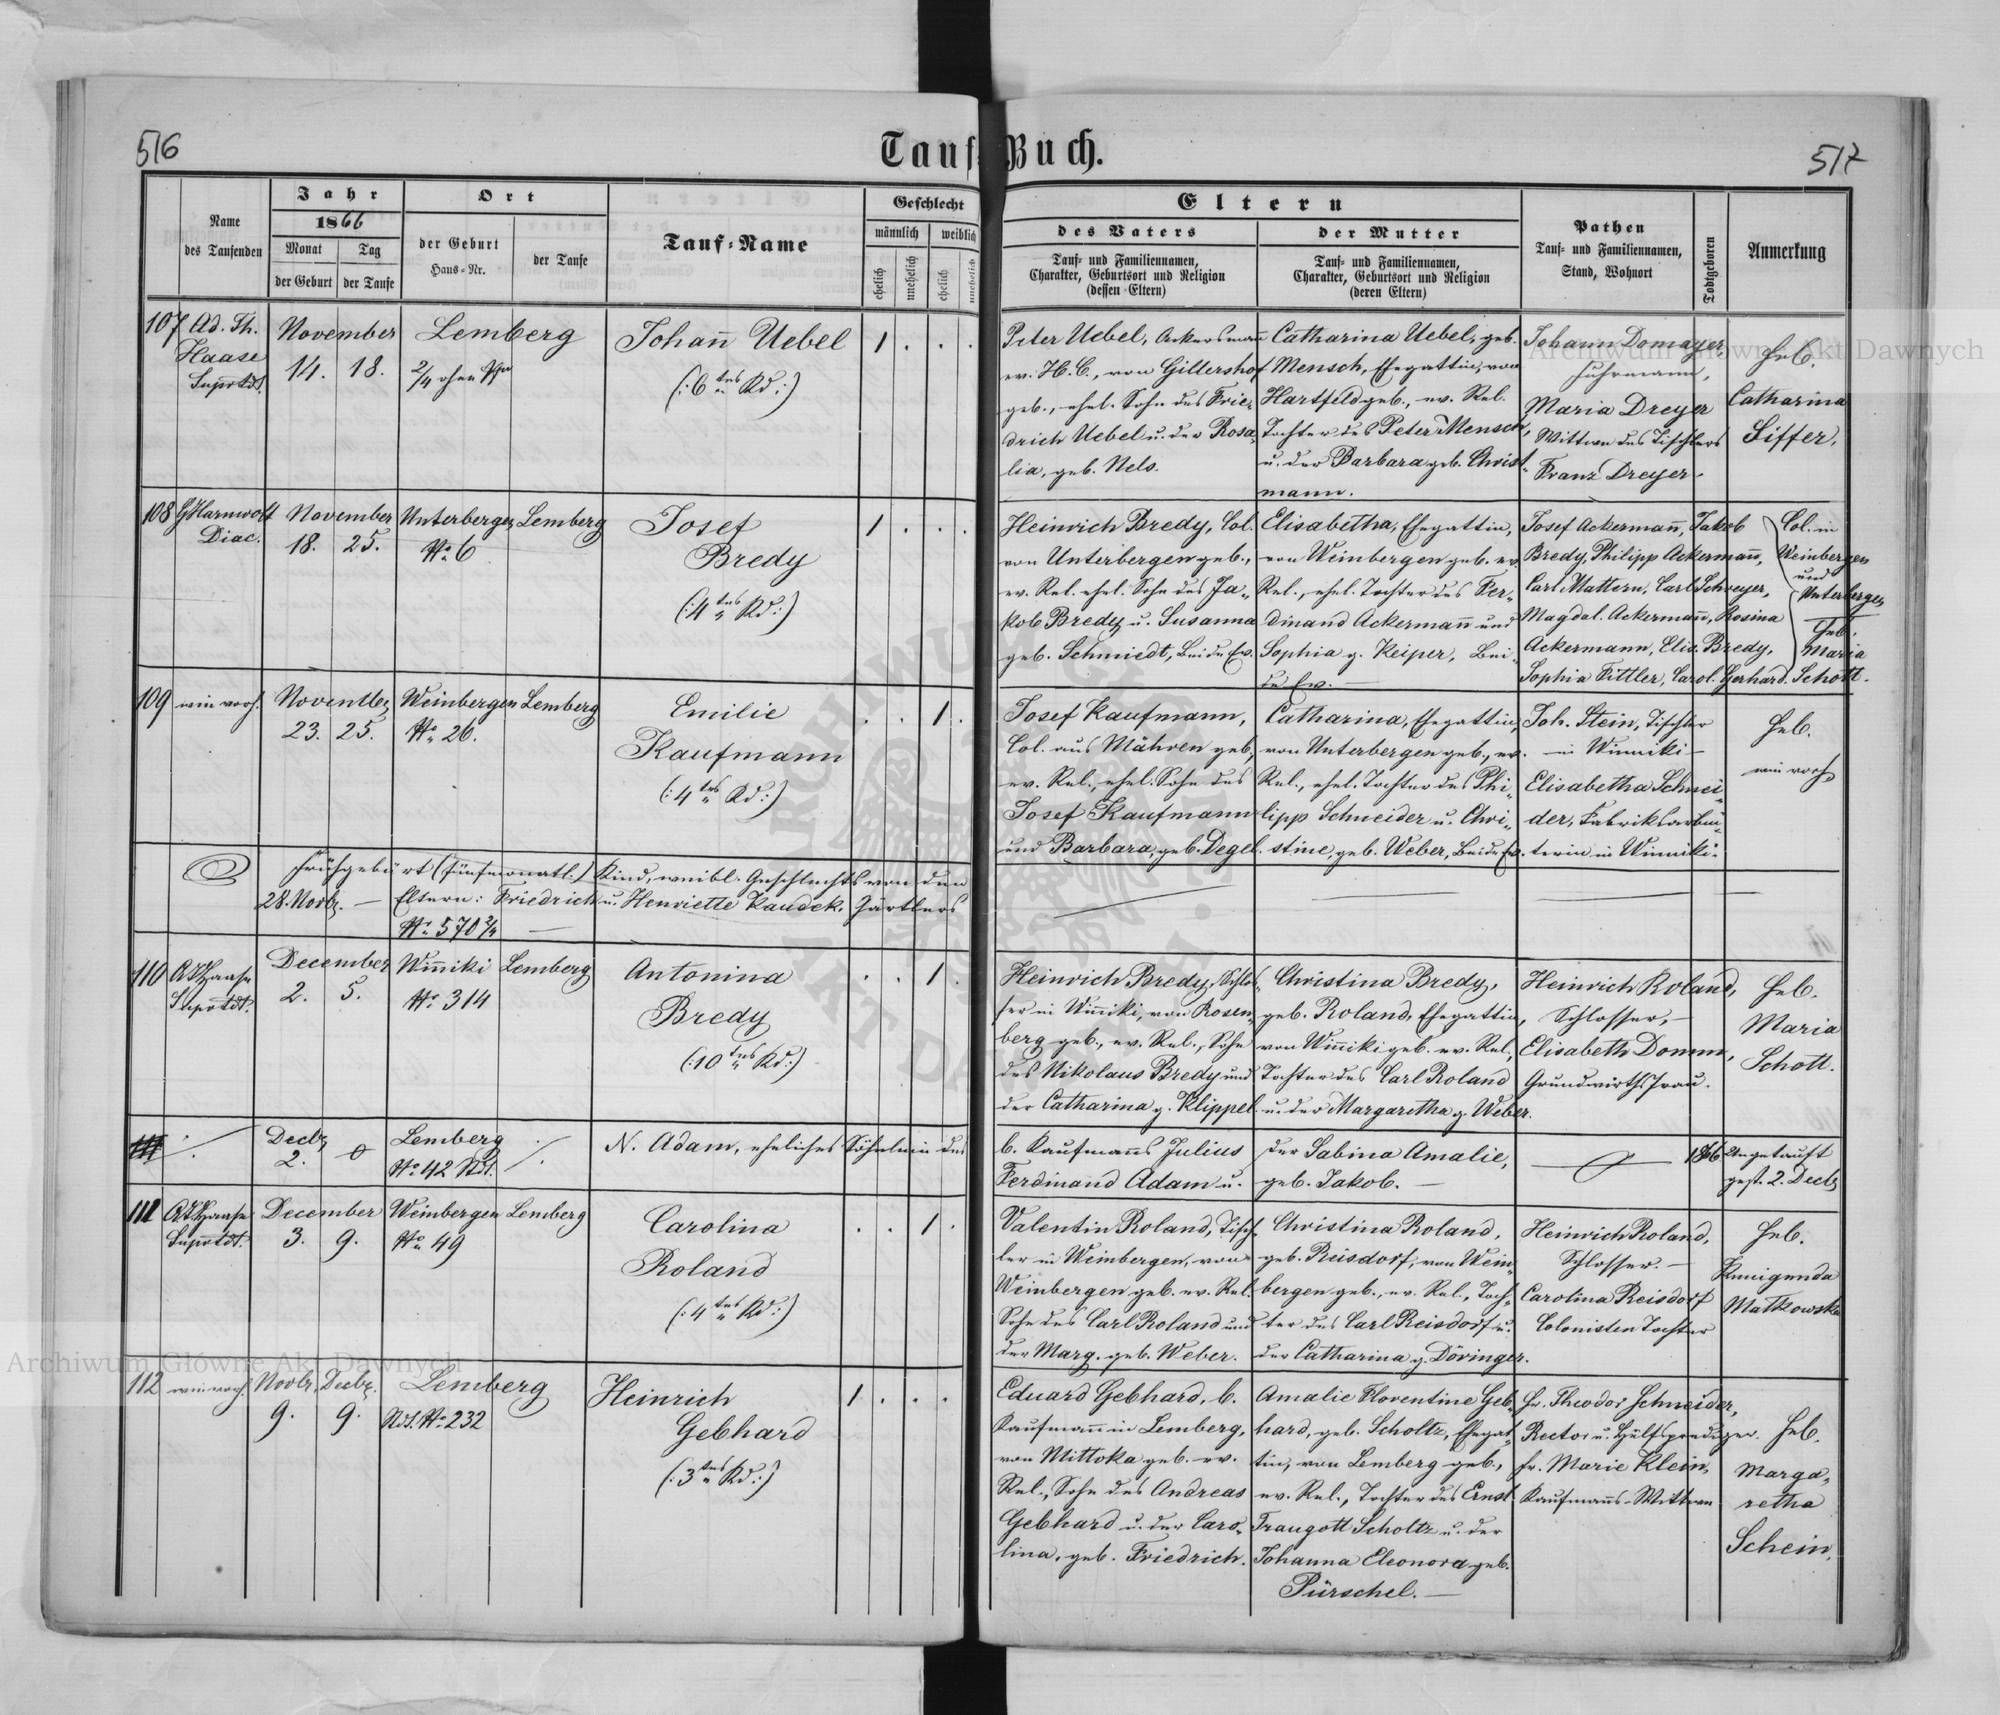 516
517
Tauf-Buch.
Name des Taufenden
Jahr
1866
Monat
Tag
der Geburt
der Taufe
Ort
der Geburt
Haus-Nr.
der Taufe
Tauf-Name
Geschlecht
männlich
weiblich
ehelich
unehelich
ehelich
unehelich
Eltern
des Vaters
Tauf- und Familiennamen,
Charakter, Geburtsort und Religion
(dessen Eltern)
der Mutter
Tauf- und Familiennamen,
Charakter, Geburtsort und Religion
(deren Eltern)
Pathen
Tauf- und Familiennamen,
Stand, Wohnort
Todtgeboren
Anmerkung
107 Ad. Th.
Haase
Suprtdt.
November
14. 18.
Lemberg
2/4
Johañ Uebel
(:6tes Kd:)
1 . . .
Peter Uebel, Ackersmann
ev. H. C., von Gillershof
geb., ehel. Sohn des Frie-
drich Uebel u. der Rosa-
lia, geb. Nels.
Catharina Uebel, geb.
Mensch, Ehegattin, von
Hartfeld geb., ev. Rel.
Tochter des Peter Mensch,
u. der Barbara geb. Christ-
mann.
Johann Domayer,
Fuhrmann,
Maria Dreyer
Wittwe des Tischlers
Franz Dreyer.
Heb.
Catharina
Siffer.
108 G Harnwolf
Diac.
November
18. 25.
Unterbergen
No 6
Lemberg
Josef
Bredy
(:4tes Kd:)
1 . . .
Heinrich Bredy, Col.
von Unterbergen geb.,
ev. Rel. ehel. Sohn des Ja-
kob Bredy u. Susanna
geb. Schmiedt, Beide Ev.
Elisabetha, Ehegattin,
von Weinbergen geb. ev.
Rel., ehel. Tochter des Fer-
dinand Ackermañ und
Sophia g. Keiper, Bei-
de Ev. —
Josef Ackermañ, Jakob
Bredy, Philipp Ackermañ,
Carl Mattern, Carl Schreyer,
Magdal. Ackermañ, Rosina
Ackermann, Elis. Bredy,
Sophia Fittler, Carol. Gerhard.
Col. in
Weinbergen
und
Unterbergen
Heb.
Maria
Schott.
109 wie vorh.
November
23. 25.
Weinbergen
No 26.
Lemberg
Emilie
Kaufmann
(:4tes Kd:)
. . 1 .
Josef Kaufmann,
Col. aus Mähren geb.,
ev. Rel., ehel. Sohn des
Josef Kaufmann
und Barbara, geb. Degel.
Catharina, Ehegattin,
von Unterbergen geb., ev.
Rel., ehel. Tochter des Phi-
lipp Schneider u. Chri-
stine, geb. Weber, Beide Ev.
Joh. Stein, Tischler
in Winniki —
Elisabetha Schnei-
der, Fabriksarbei-
terin in Winniki.
Heb.
wie vorh
Frühgeburt (fünfmonatl.) Kind, weibl. Geschlechts von den
28. Novbr. — Eltern: Friedrich u. Henriette Kaudek, Gärtlers
No 570 2/4 —
110 AThHaase
Suprtdt.
December
2. 5.
Wiñiki
No 314
Lemberg
Antonina
Bredy
(:10tes Kd:)
. . 1 .
Heinrich Bredy, Schlos-
ser in Wiñiki, von Rosen-
berg geb., ev. Rel., Sohn
des Nikolaus Bredy und
der Catharina g. Klippel.
Christina Bredy,
geb. Roland, Ehegattin,
von Wiñiki geb. ev. Rel.,
Tochter des Carl Roland
u. der Margaretha g. Weber.
Heinrich Roland,
Schlosser, —
Elisabeth Domm,
Grundwirthsfrau.
Heb.
Maria
Schott.
111
Decbr
2.
Lemberg
No 42 Rdt.
N. Adam, eheliches Söhnlein des
b. Kaufmanns Julius
Ferdinand Adam u.
der Sabina Amalie,
geb. Jakob. —
1866
Ungetauft
gest. 2. Decbr
111 AThHaase
Suprtdt.
December
3. 9.
Weinbergen
No 49
Lemberg
Carolina
Roland
(:4tes Kd:)
. . 1 .
Valentin Roland, Tisch-
ler in Weinbergen, von
Weinbergen geb. ev. Rel.
Sohn des Carl Roland und
der Marg. geb. Weber.
Christina Roland,
geb. Reisdorf, von Wein-
bergen geb., ev. Rel., Toch-
ter des Carl Reisdorf u.
der Catharina g. Döringer.
Heinrich Roland,
Schlosser. —
Carolina Reisdorf
Colonisten Tochter
Heb.
Kunigunda
Matkowska
112 wie vorh.
Novbr. Decbr.
9. 9.
Lemberg
Rdt. No 232
Heinrich
Gebhard
(:3tes Kd:)
1 . . .
Eduard Gebhard, b.
Kaufmañ in Lemberg,
von Mittoka geb. ev.
Rel., Sohn des Andreas
Gebhard u. der Caro-
lina, geb. Friedrich.
Amalie Florentine Geb-
hard, geb. Scholtz, Ehegat-
tin, von Lemberg geb.,
ev. Rel., Tochter des Ernst
Traugott Scholtz u. der
Johanna Eleonora geb.
Pürschel. —
Hr. Theodor Schneider,
Rector u. Hülfsprediger.
Fr. Marie Klein,
Kaufmañs-Wittwe
Heb.
Marga-
retha
Schein.
Archiwum Główne Akt Dawnych
Archiwum Główne Akt Dawnych